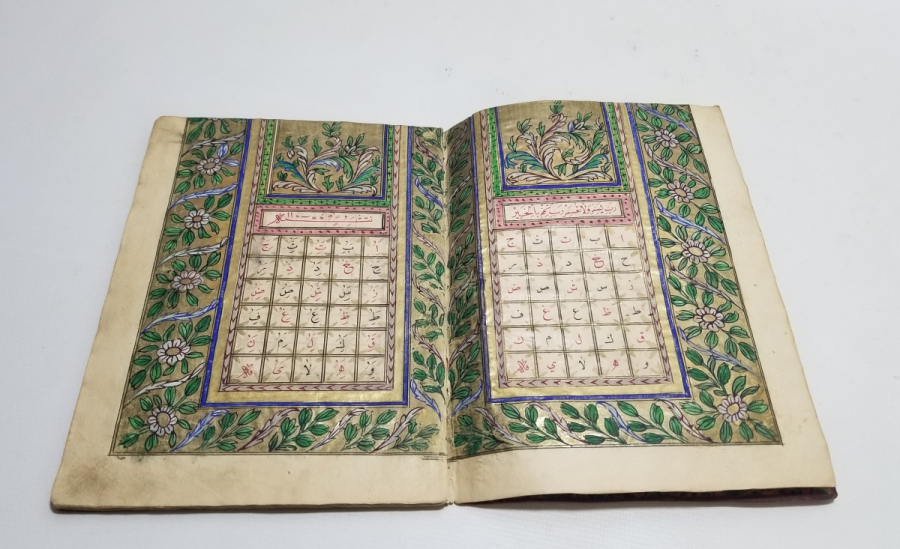 رب يسر ولا تعسر رب تمم بالخير
ا ب ت ث ج
ح خ د ذ ر
ز س ش ص ض
ط ظ ع غ ف
ق ك ل م ن
و ه لا ى
ا ب ت ث ج
ح خ د ذ ر
ز س ش ص ض
ط ظ ع غ ف
ق ك ل م ن
و ه لا ى